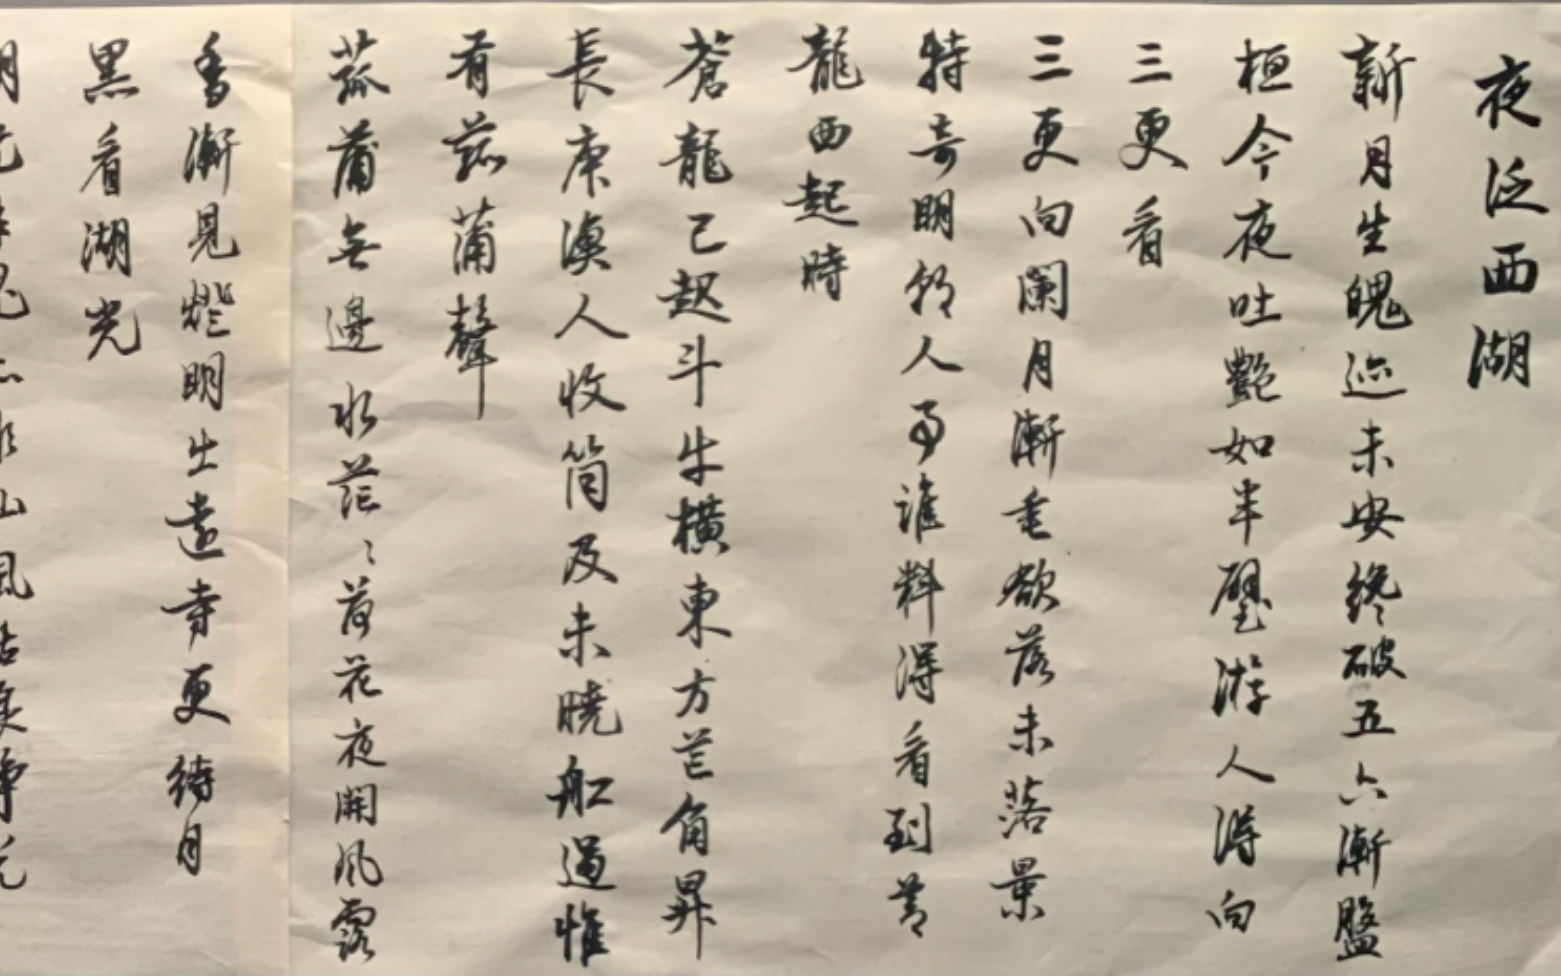 夜泛西湖
新月生魄迹未安終破五六漸盤
桓今夜吐艷如半璧游人得向
三更看
三更向闌月漸垂欲落未落景
特奇明朝人事誰料得看到蒼
龍西起時
蒼龍已起斗牛橫東方芒角昇
長庚漁人收筒及未曉船過惟
有菰蒲聲
菰蒲無邊水茫〻荷花夜開風露
香漸見燈明出遠寺更待月
黑看湖光